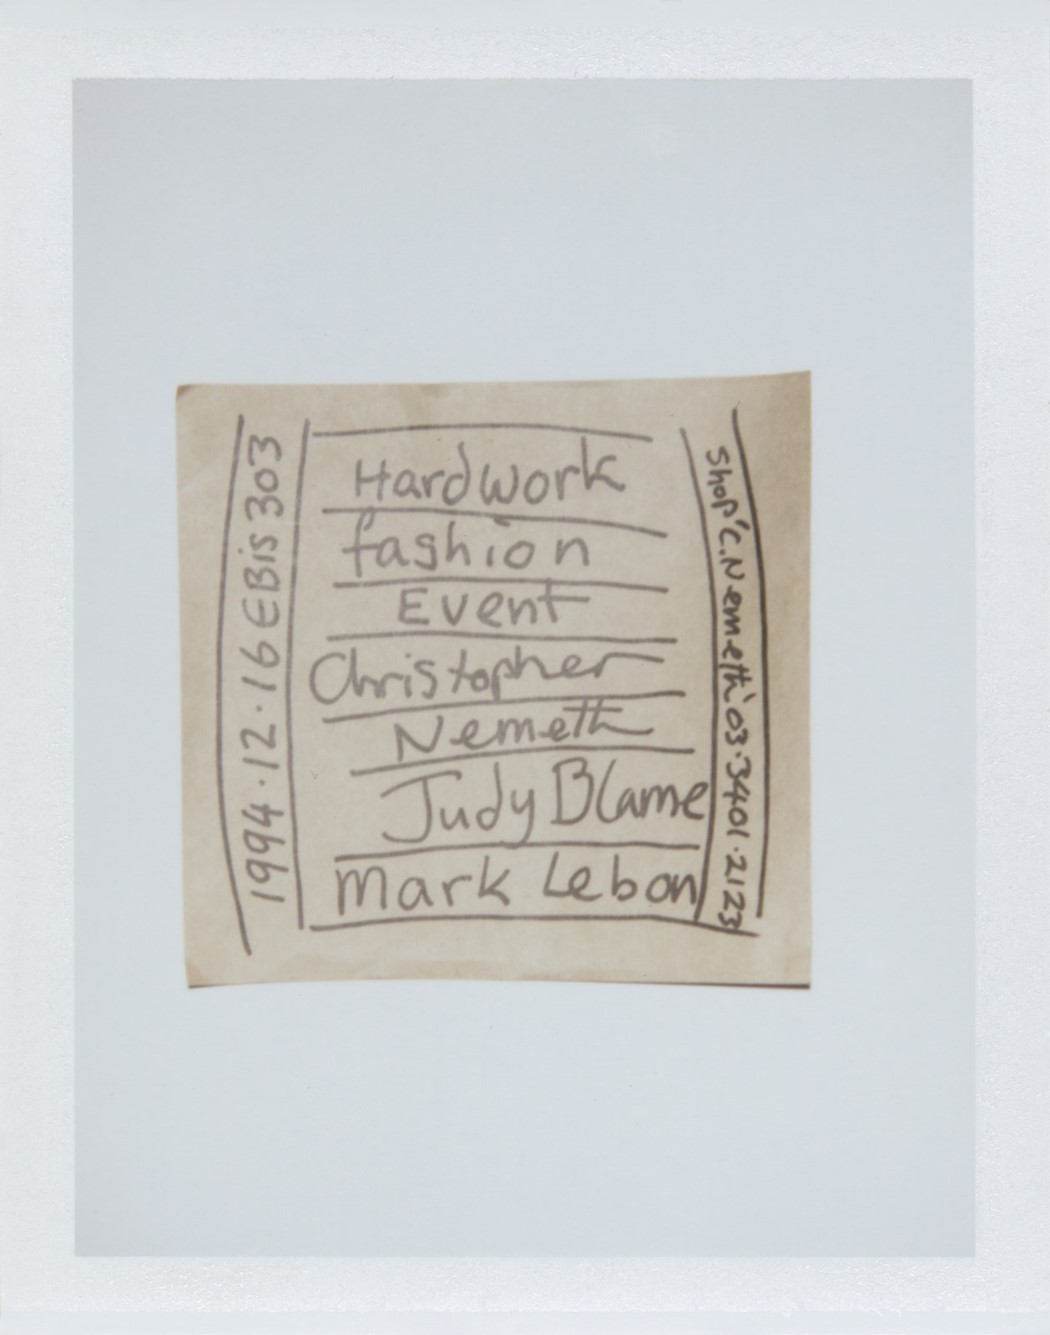 1994.12.16 EBis 303
Hardwork
fashion
Event
Christopher
Nemeth
Judy Blame
Mark Lebon
Shop 'C.Nemeth' 03.3401.2123